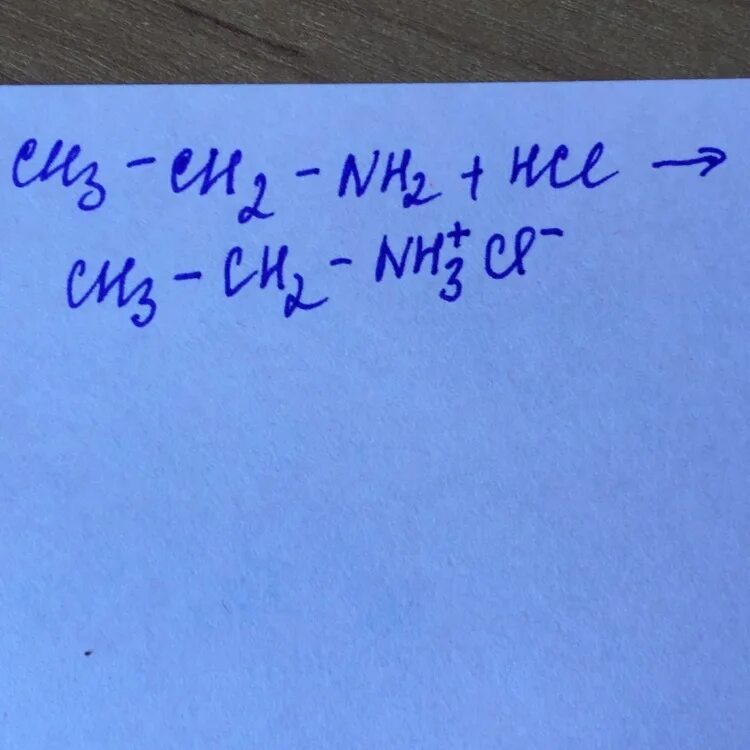 CH₃ – CH₂ – NH₂ + HCl →
CH₃ – CH₂ – NH₃⁺ Cl⁻